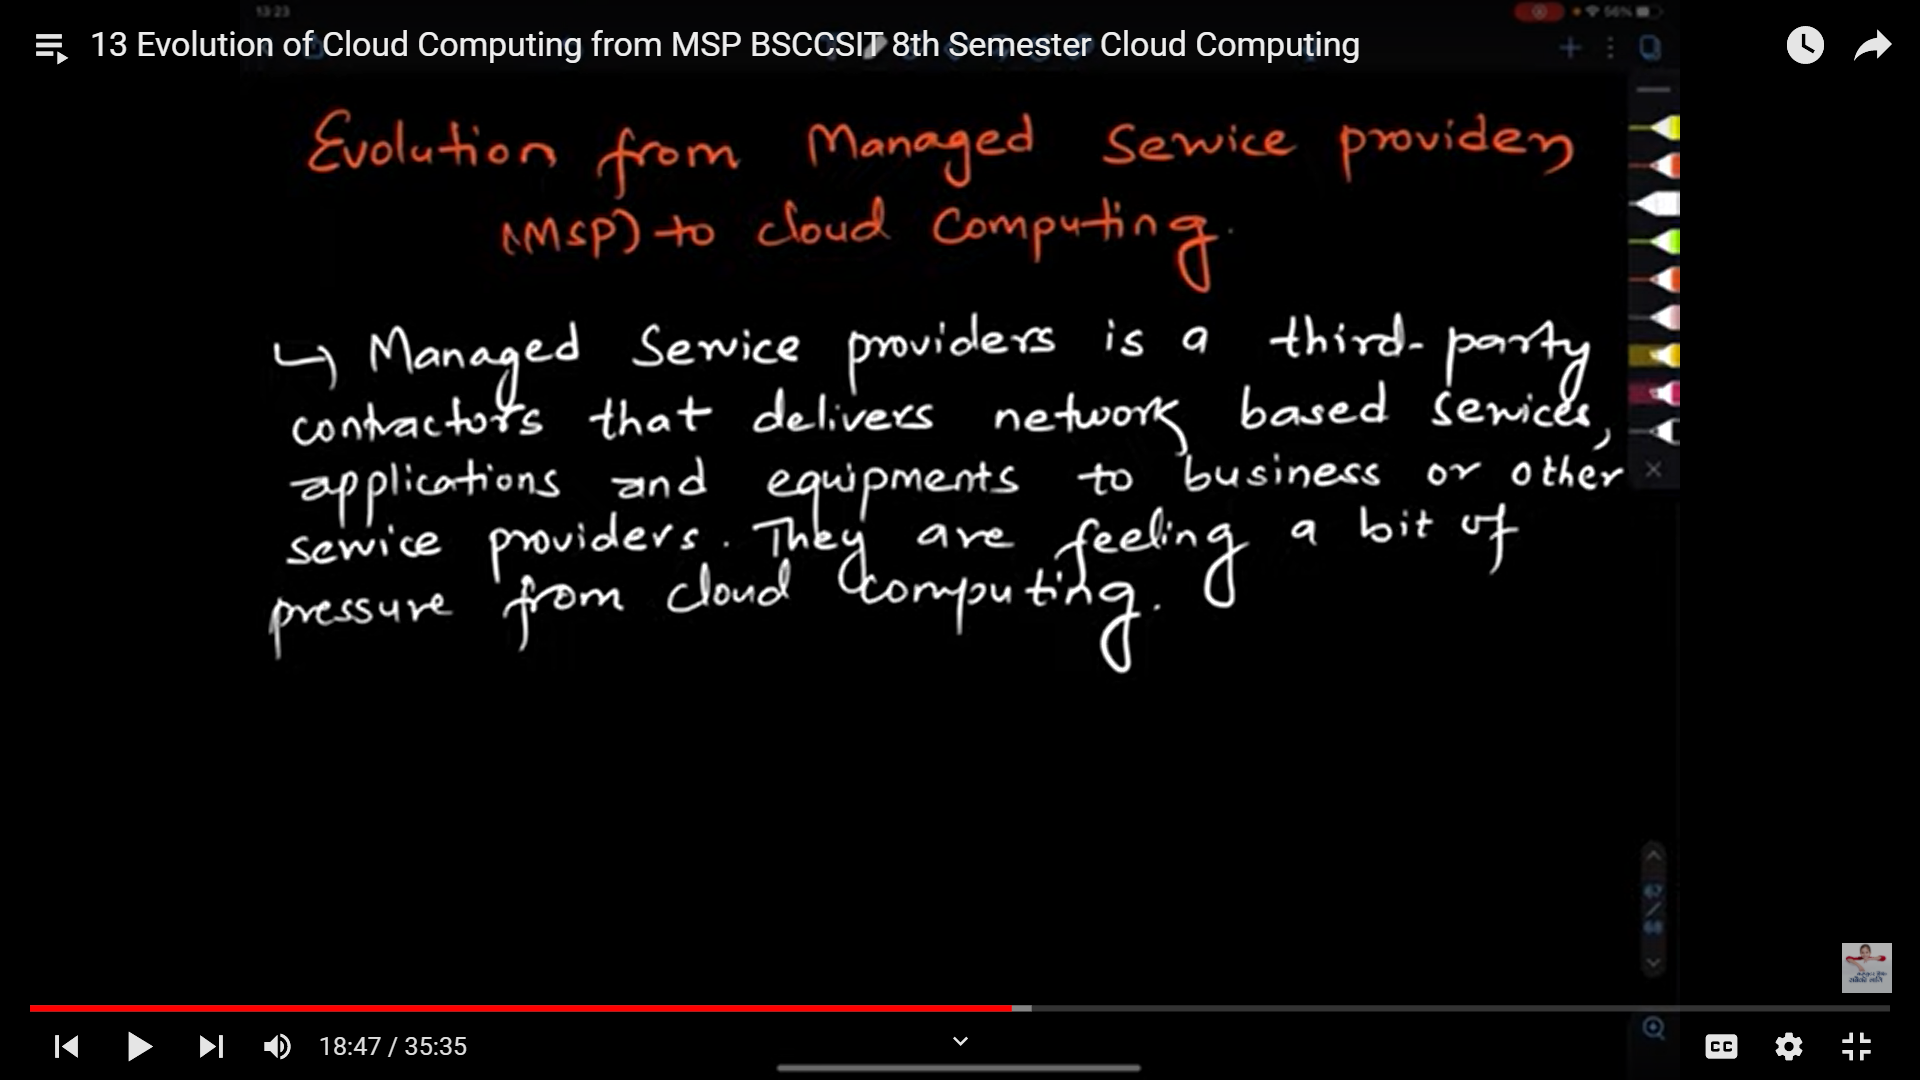 13:23
56%
13 Evolution of Cloud Computing from MSP BSCCSIT 8th Semester Cloud Computing
Evolution from Managed Service providers
(MSP) to cloud Computing.
↳ Managed Service providers is a third-party
contractors that delivers network based services,
applications and equipments to business or other
service providers. They are feeling a bit of
pressure from cloud computing.
67
/
68
18:47 / 35:35
CC